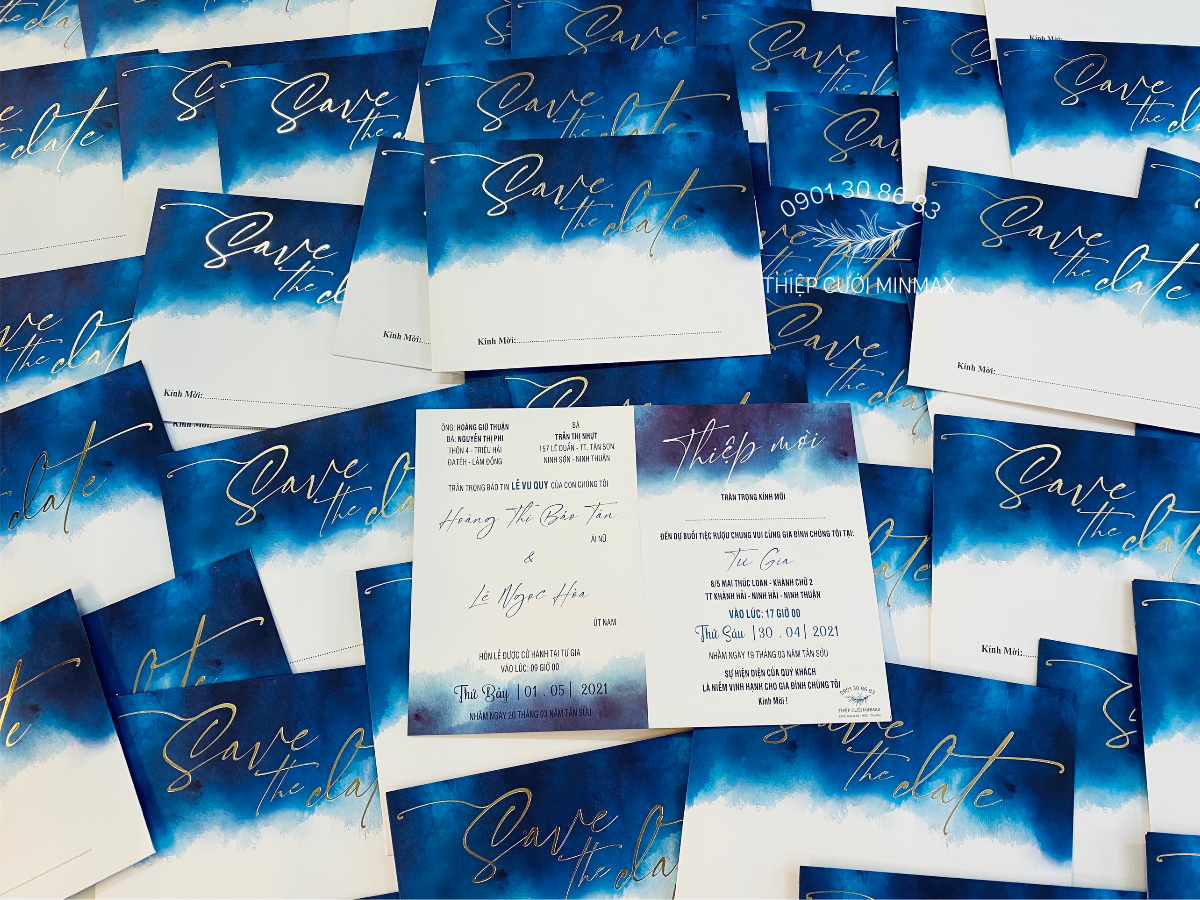 Save
the date
Kính Mời:
0901 30 86 83
THIỆP CƯỚI MINMAX
Save
the date
Kính Mời:
Save
the
Kính Mời:
Kính Mời:
ÔNG: HOÀNG GIƯ THUẬN
BÀ: NGUYỄN THỊ PHI
THÔN 4 - TRIỆU HẢI
ĐATẺH - LÂM ĐỒNG
BÀ
TRẦN THỊ NHỰT
157 LÊ DUẨN - TT. TÂN SƠN
NINH SƠN - NINH THUẬN
TRÂN TRỌNG BÁO TIN LỄ VU QUY CỦA CON CHÚNG TÔI
Hoàng Thị Bảo Tân
ÁI NỮ
&
Lê Ngọc Hòa
ÚT NAM
HÔN LỄ ĐƯỢC CỬ HÀNH TẠI TƯ GIA
VÀO LÚC: 09 GIỜ 00
Thứ Bảy | 01 . 05 | 2021
NHẰM NGÀY 20 THÁNG 03 NĂM TÂN SỬU
Thiệp mời
TRÂN TRỌNG KÍNH MỜI
ĐẾN DỰ BUỔI TIỆC RƯỢU CHUNG VUI CÙNG GIA ĐÌNH CHÚNG TÔI TẠI:
Tư Gia
8/5 MAI THÚC LOAN - KHÁNH CHỮ 2
TT KHÁNH HẢI - NINH HẢI - NINH THUẬN
VÀO LÚC: 17 GIỜ 00
Thứ Sáu | 30 . 04 | 2021
NHẰM NGÀY 19 THÁNG 03 NĂM TÂN SỬU
SỰ HIỆN DIỆN CỦA QUÝ KHÁCH
LÀ NIỀM VINH HẠNH CHO GIA ĐÌNH CHÚNG TÔI
Kính Mời !
0901 30 86 83
THIỆP CƯỚI MINMAX
Save
the date
Kính Mời:
Save
the date
Save
the
Save
the date